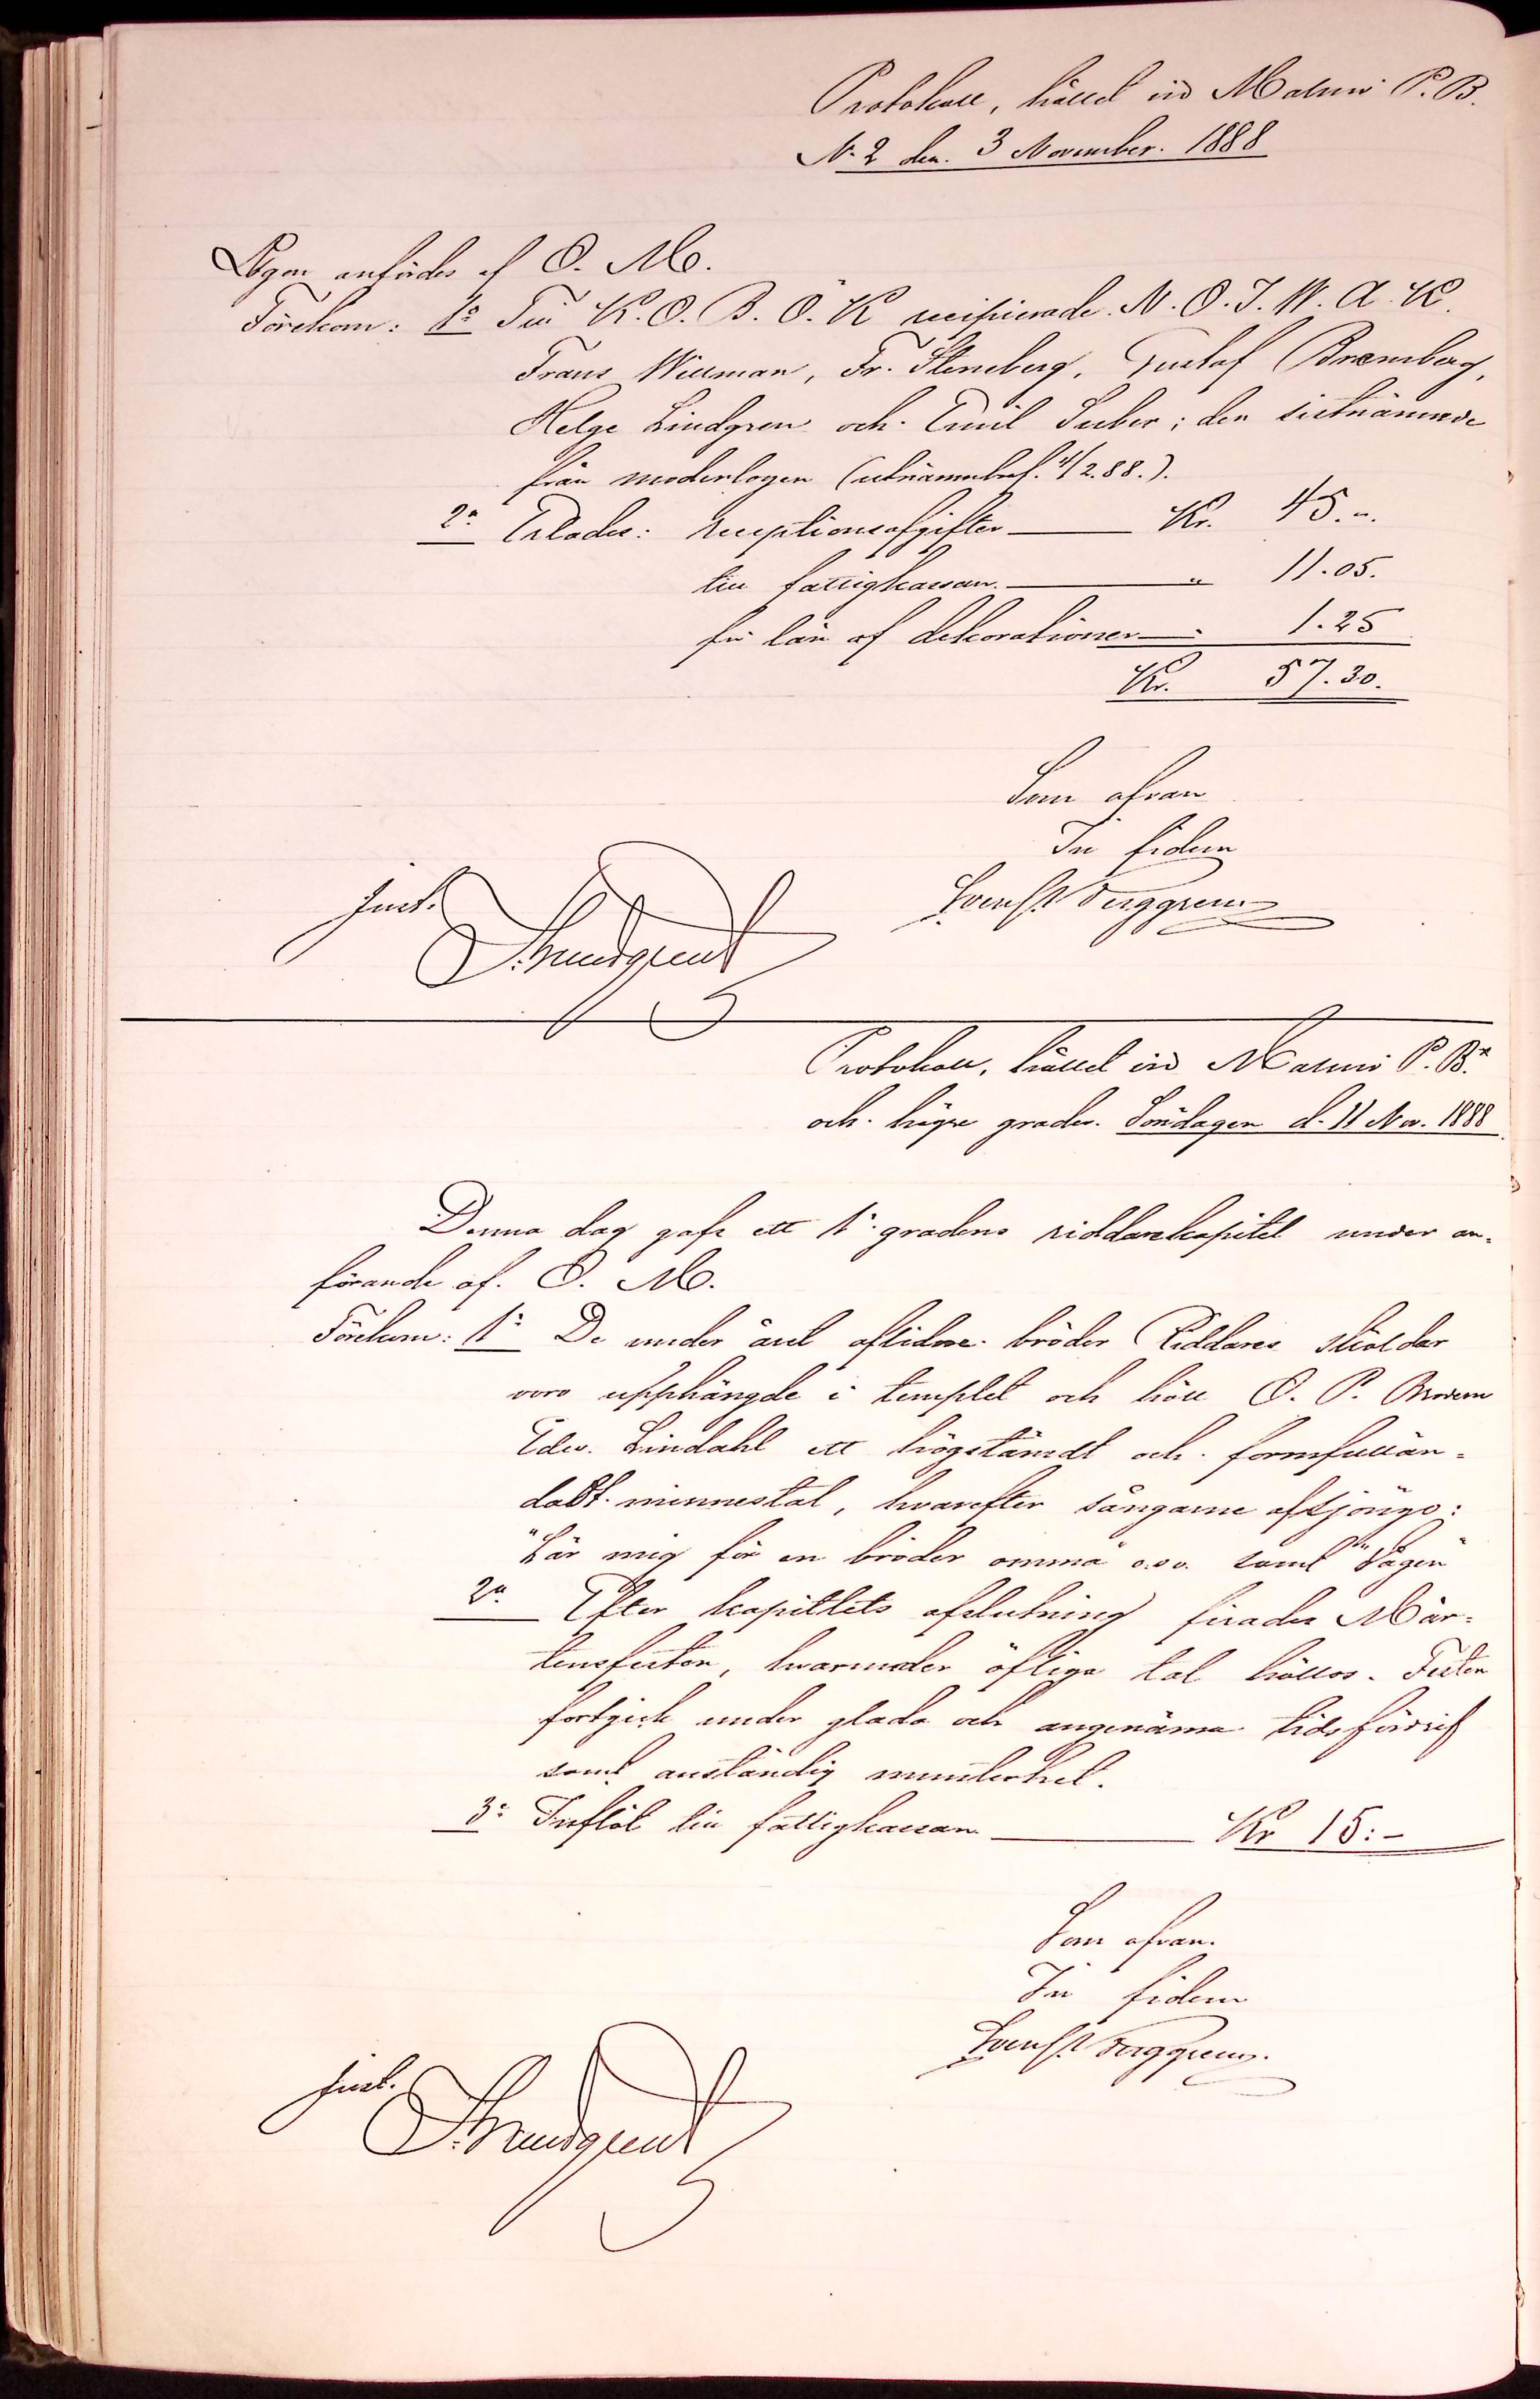 Protokoll, hållet vid Malmö P. B.
N. 2 den 3 November. 1888
Logen anfördes af O. M.
Förekom: 1º Till K. O. B. Ö. K recipierade N. O. I. W. A. K.
Frans Willman, Fr. Steneberg, Gustaf Bremberg,
Helge Lindgren och Emil Suber; den sistnämnde
från moderlogen (utnämnbref. 4/2.88.).
2º Erlades: receptionsafgifter Kr. 45.-.
till fattigkassan. " 11.05.
för lån af dekorationer " 1.25
Kr. 57.30.
Som ofvan
In fidem
Berggren
Just.
Protokoll, hållet vid Malmö P. B.
och högre grader. Söndagen d. 11 Nov. 1888
Denna dag gafs ett 1º gradens riddarekapitel under an-
förande af. O. M.
Förekom: 1º De under året aflidne bröder Riddares sköldar
voro upphängde i templet och höll O. P. Brodern
Edw. Lindahl ett högstämdt och formfullän-
dadt minnestal, hvarefter sångarne afsjöngo:
"Lär mig för en broder ömma" o.s.v. samt "Vågen"
2º Efter kapitlets afslutning firades Mår-
tensfesten, hvarunder öfliga tal höllos. Festen
fortgick under glada och angenäma tidsfördrif
samt anständig munterhet.
3º Influtit till fattigkassan Kr 15:-
Som ofvan.
In fidem
Berggren.
Just.